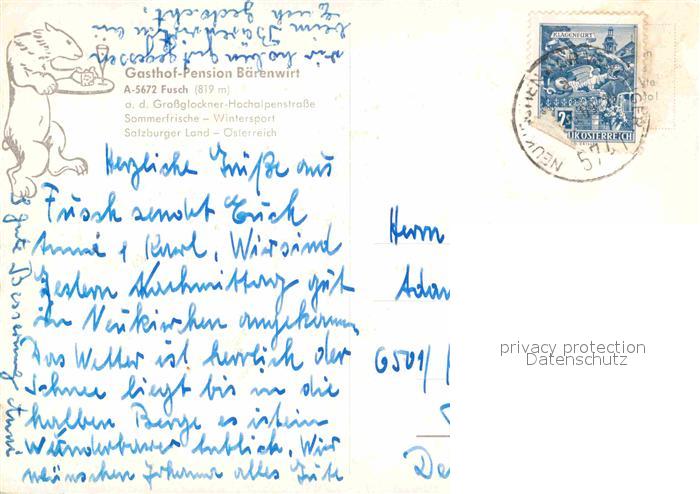 Gasthof-Pension Bärenwirt
A-5672 Fusch (819 m)
a. d. Großglockner-Hochalpenstraße
Sommerfrische – Wintersport
Salzburger Land – Österreich
Herzliche Grüße aus
Fusch sendet Euch
Anni & Karl. Wir sind
Gestern Nachmittag gut
in Neukirchen angekommen
Das Wetter ist herrlich der
Schnee liegt bis in die
halben Berge es ist ein
Wunderbarer Anblick. Wir
wünschen Johanna alles Gute
& gute Besserung Anni
wir haben gut gegessen
beim Bärenwirt
Euch gedacht.
KLAGENFURT
2S
REPUBLIK ÖSTERREICH
NEUKIRCHEN
574
Herrn
Adam
6501/
privacy protection
Datenschutz